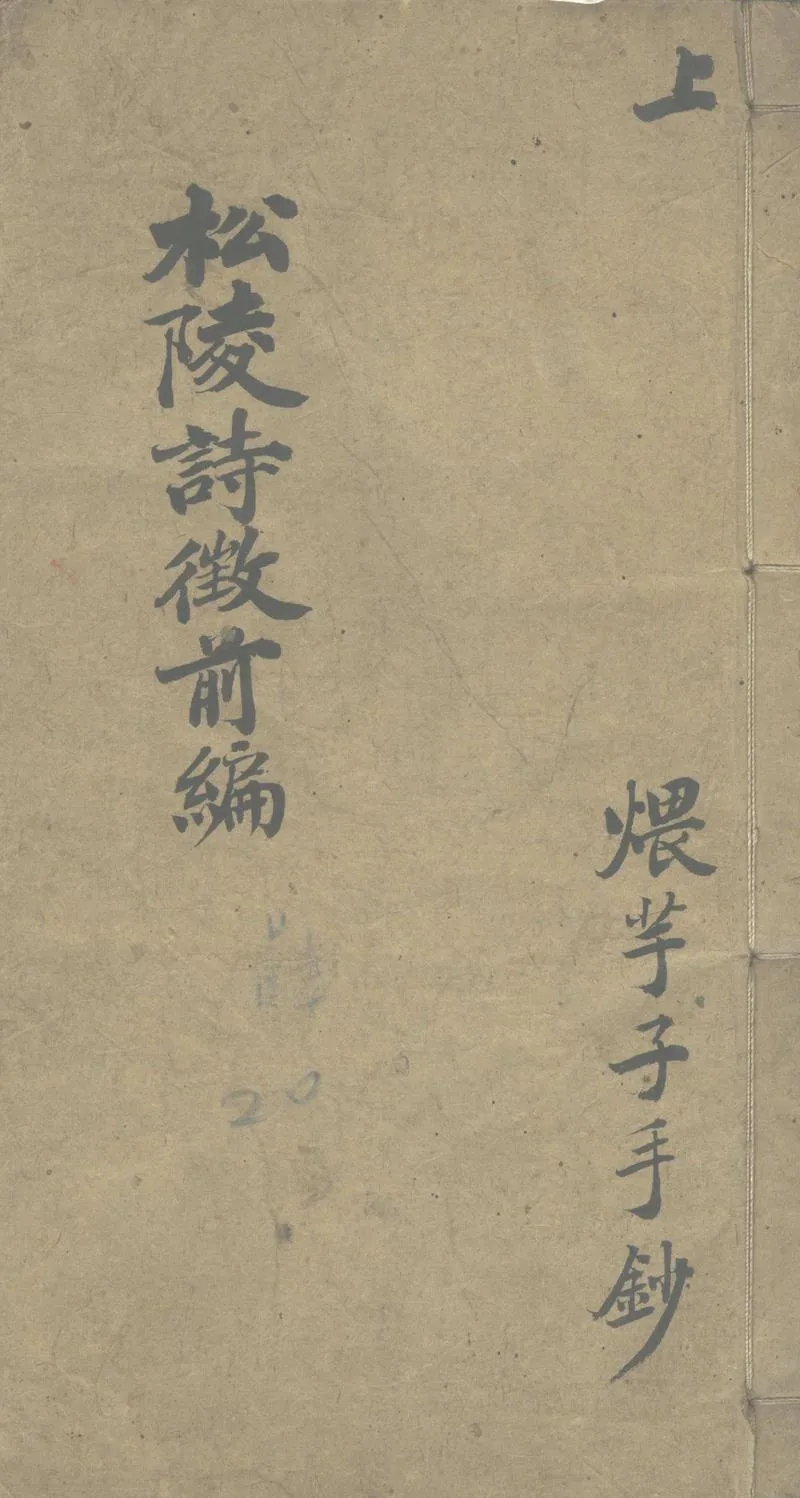 上
煨芋子手鈔
松陵詩徴前編
20